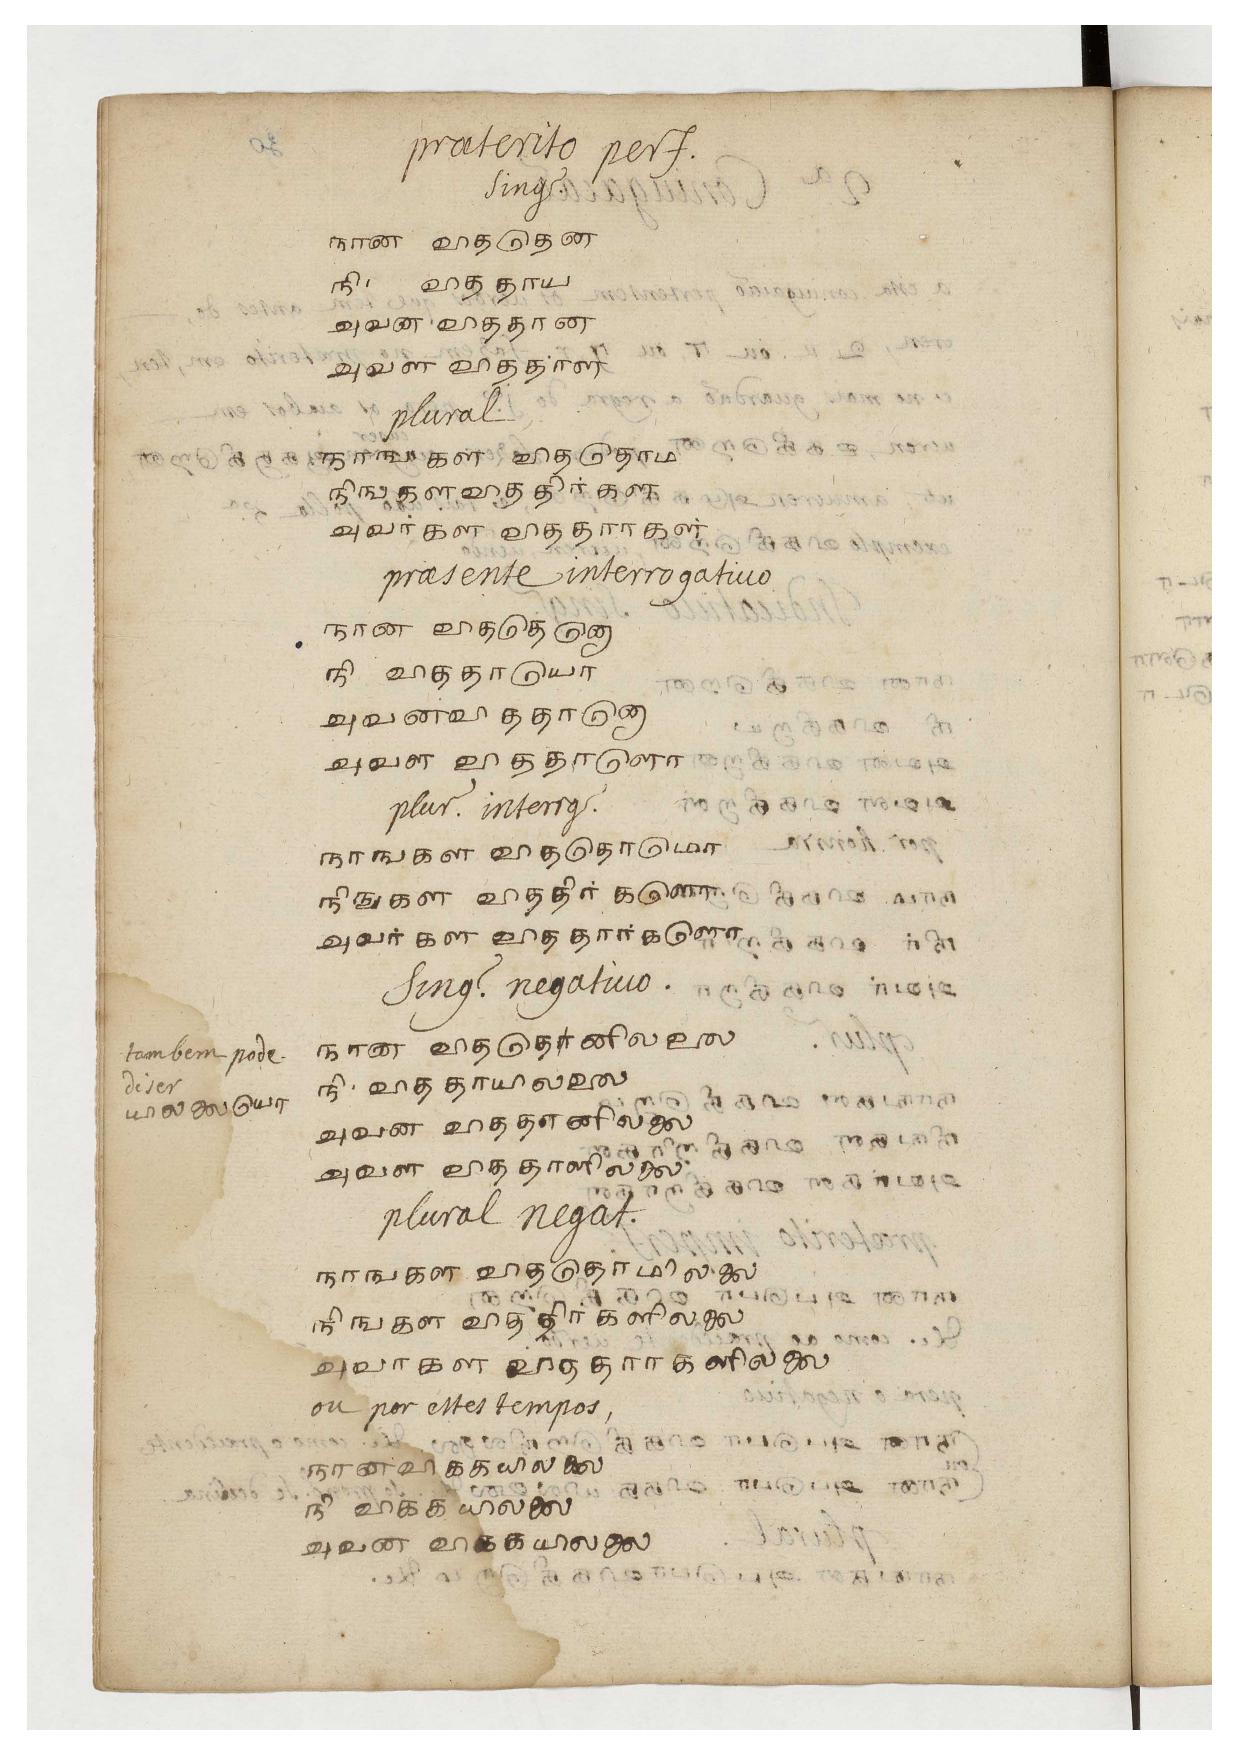 præterito perf.
Singr.
நான வைததென
நி வைததாய
அவன வைததான
அவள வைததாள்
plural
நாஙகள் வைததொம
நிஙகள வைததிர்கள
அவர்கள வைததாாகள்
præsente interrogatiuo
நான வைததெனொ
நி வைததாயொ
அவன்வைததானொ
அவள வைததாளொ
plur. interrg.
நாஙகள வைததொமொ
நிஙகள வைததிர்களொ
அவர்கள வைததார்களொ
Singr. negatiuo.
நான வைததெனிலலை
tambem pode
diser
யிலலையொ
நி வைததாயிலலை
அவன வைததானிலலை
அவள வைததாளிலலை
plural negat.
நாஙகள வைததொமிலலை
நிஙகள வைததிர்களிலலை
அவாகள வைததாாகளிலலை
ou por estes tempos,
நானவைககயிலலை
நி வைககயிலலை
அவன வைககயிலலை